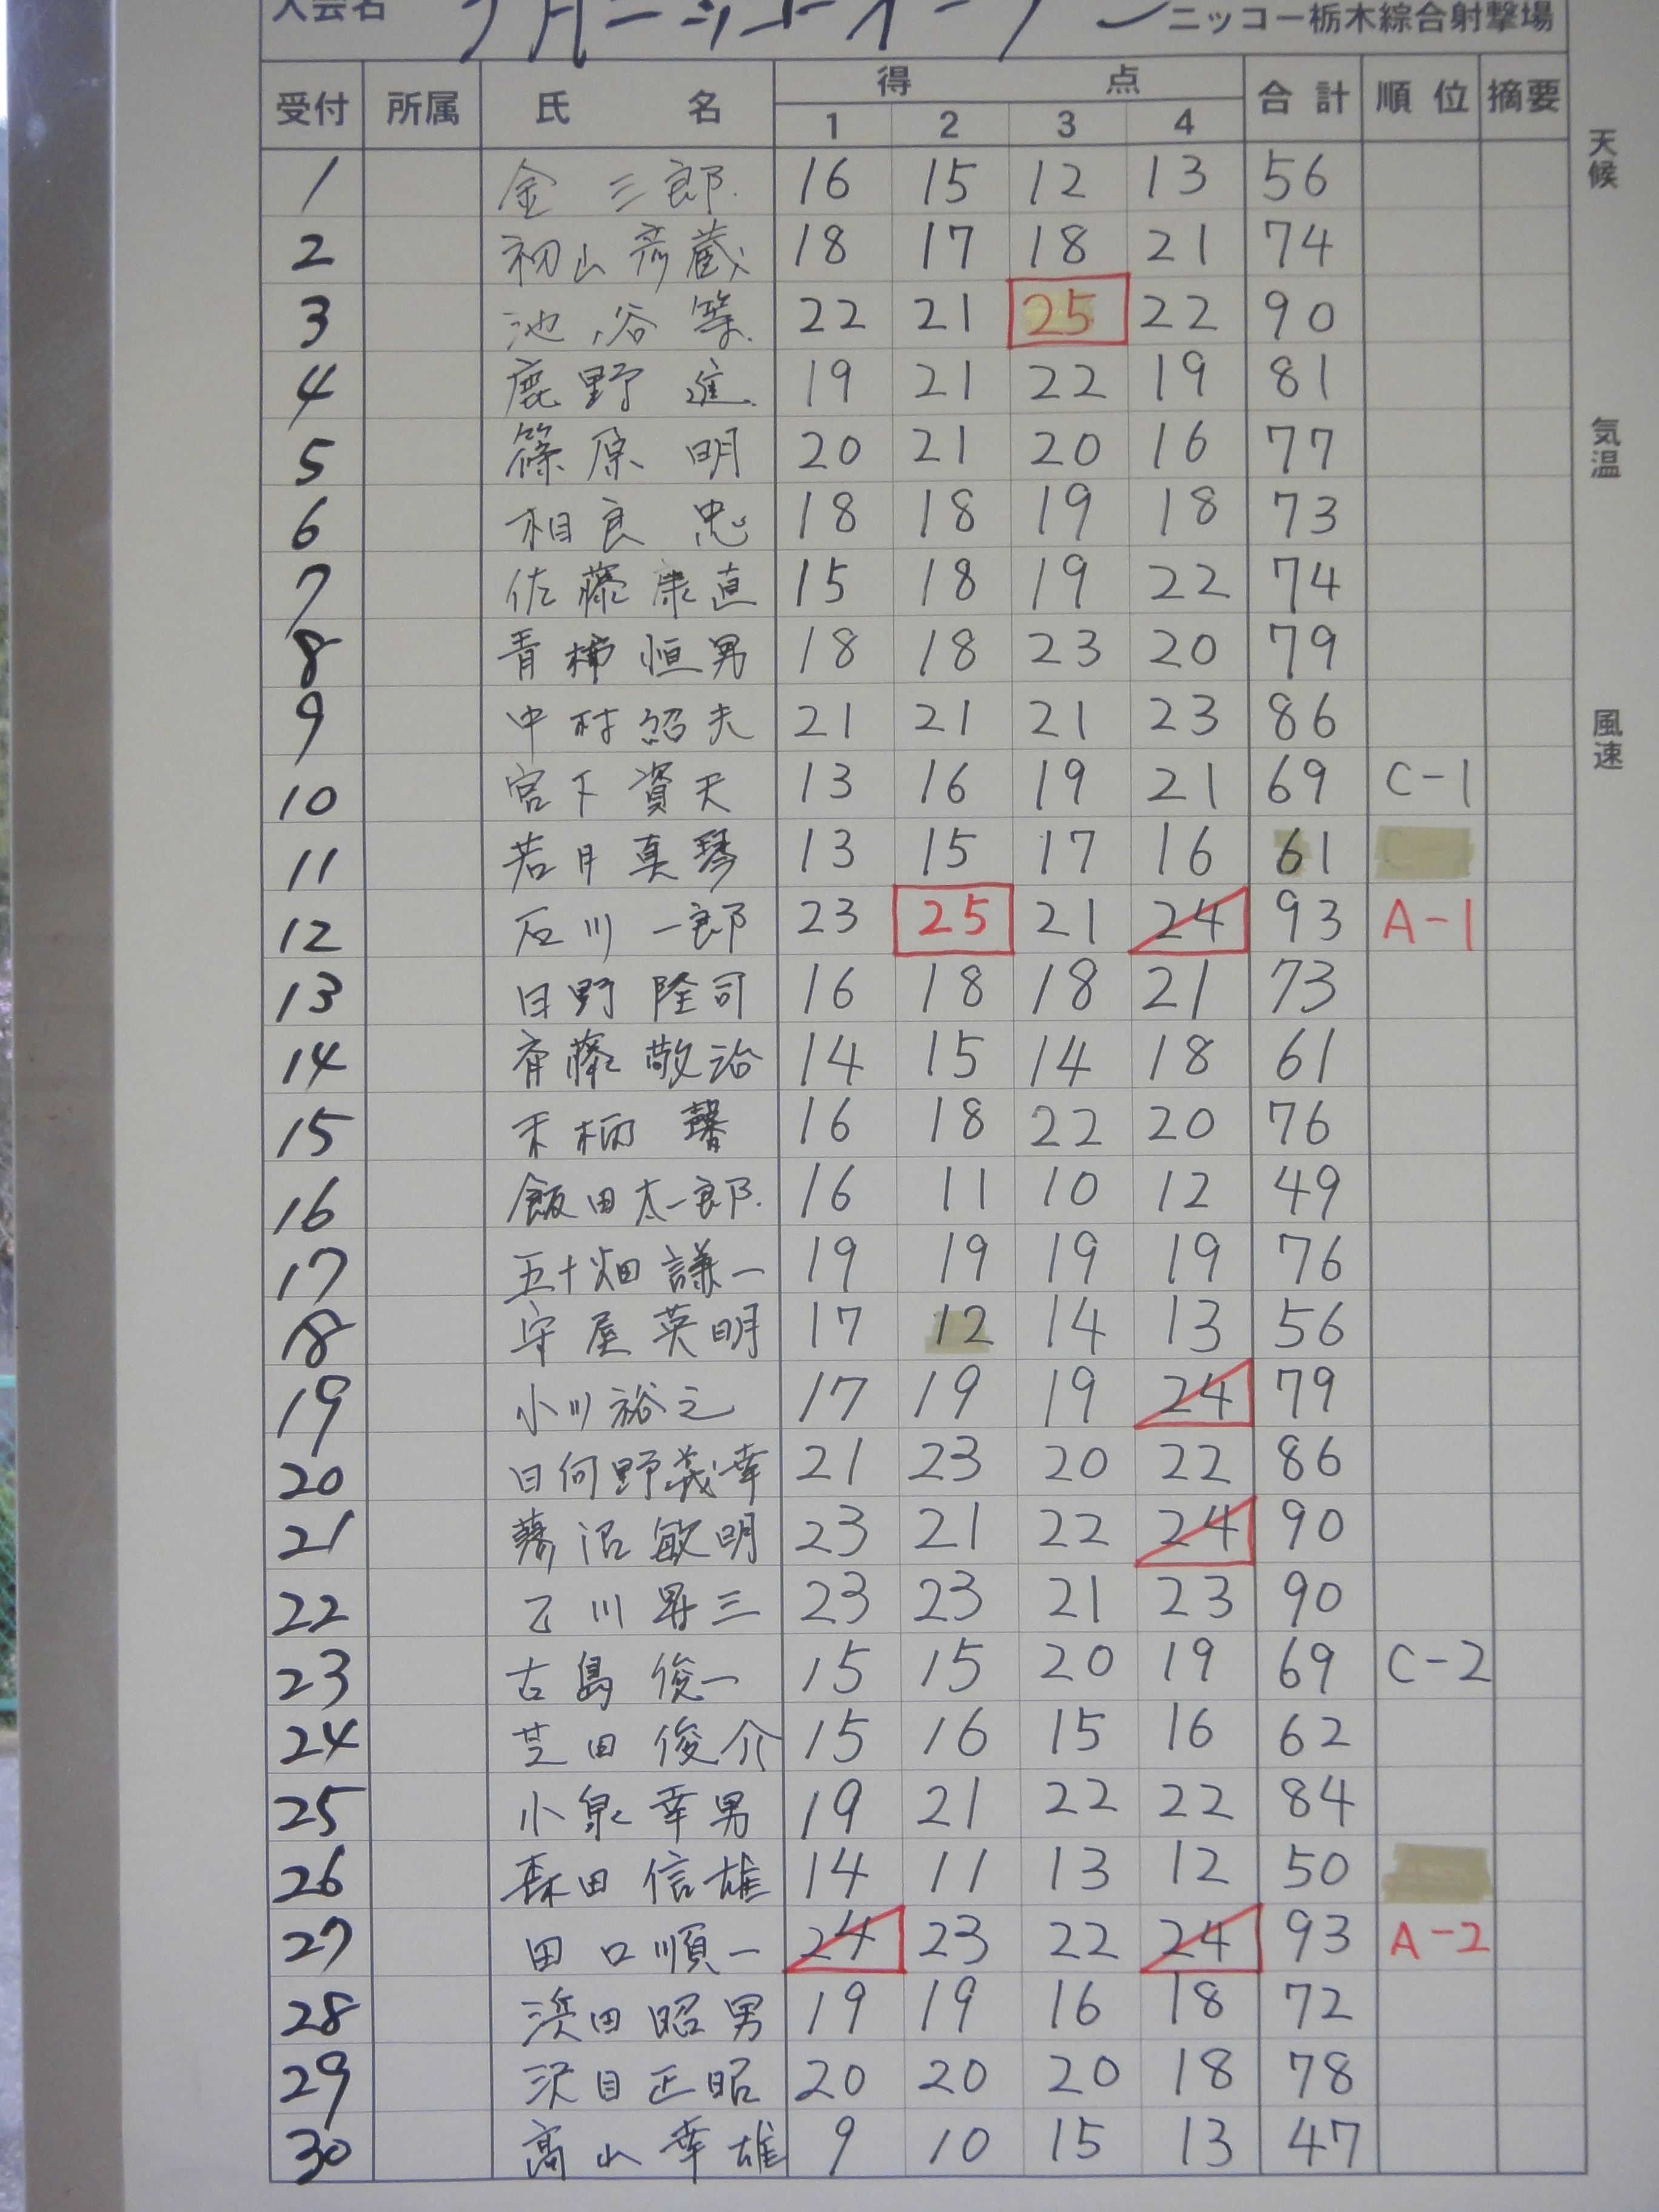 大会名 月ニッコーオープン ニッコー栃木綜合射撃場
受付 所属 氏名 得点 合計 順位 摘要
1 2 3 4
天候
気温
風速
1 金 三郎 16 15 12 13 56
2 初山 斉蔵 18 17 18 21 74
3 池谷 等 22 21 25 22 90
4 鹿野 進 19 21 22 19 81
5 篠原 明 20 21 20 16 77
6 相良 忠 18 18 19 18 73
7 佐藤康直 15 18 19 22 74
8 青柳恒男 18 18 23 20 79
9 中村紹夫 21 21 21 23 86
10 宮下資天 13 16 19 21 69 C-1
11 若月真琴 13 15 17 16 61
12 石川一郎 23 25 21 24 93 A-1
13 日野隆司 16 18 18 21 73
14 斉藤敬治 14 15 14 18 61
15 馨 16 18 22 20 76
16 飯田太一郎 16 11 10 12 49
17 五十畑謙一 19 19 19 19 76
18 守屋英明 17 12 14 13 56
19 小川裕之 17 19 19 24 79
20 日何野義幸 21 23 20 22 86
21 沼敏明 23 21 22 24 90
22 乙川昇三 23 23 21 23 90
23 古島俊一 15 15 20 19 69 C-2
24 芝田俊介 15 16 15 16 62
25 小泉幸男 19 21 22 22 84
26 森田信雄 14 11 13 12 50
27 田口順一 24 23 22 24 93 A-2
28 浜田昭男 19 19 16 18 72
29 沢目正昭 20 20 20 18 78
30 高山幸雄 9 10 15 13 47